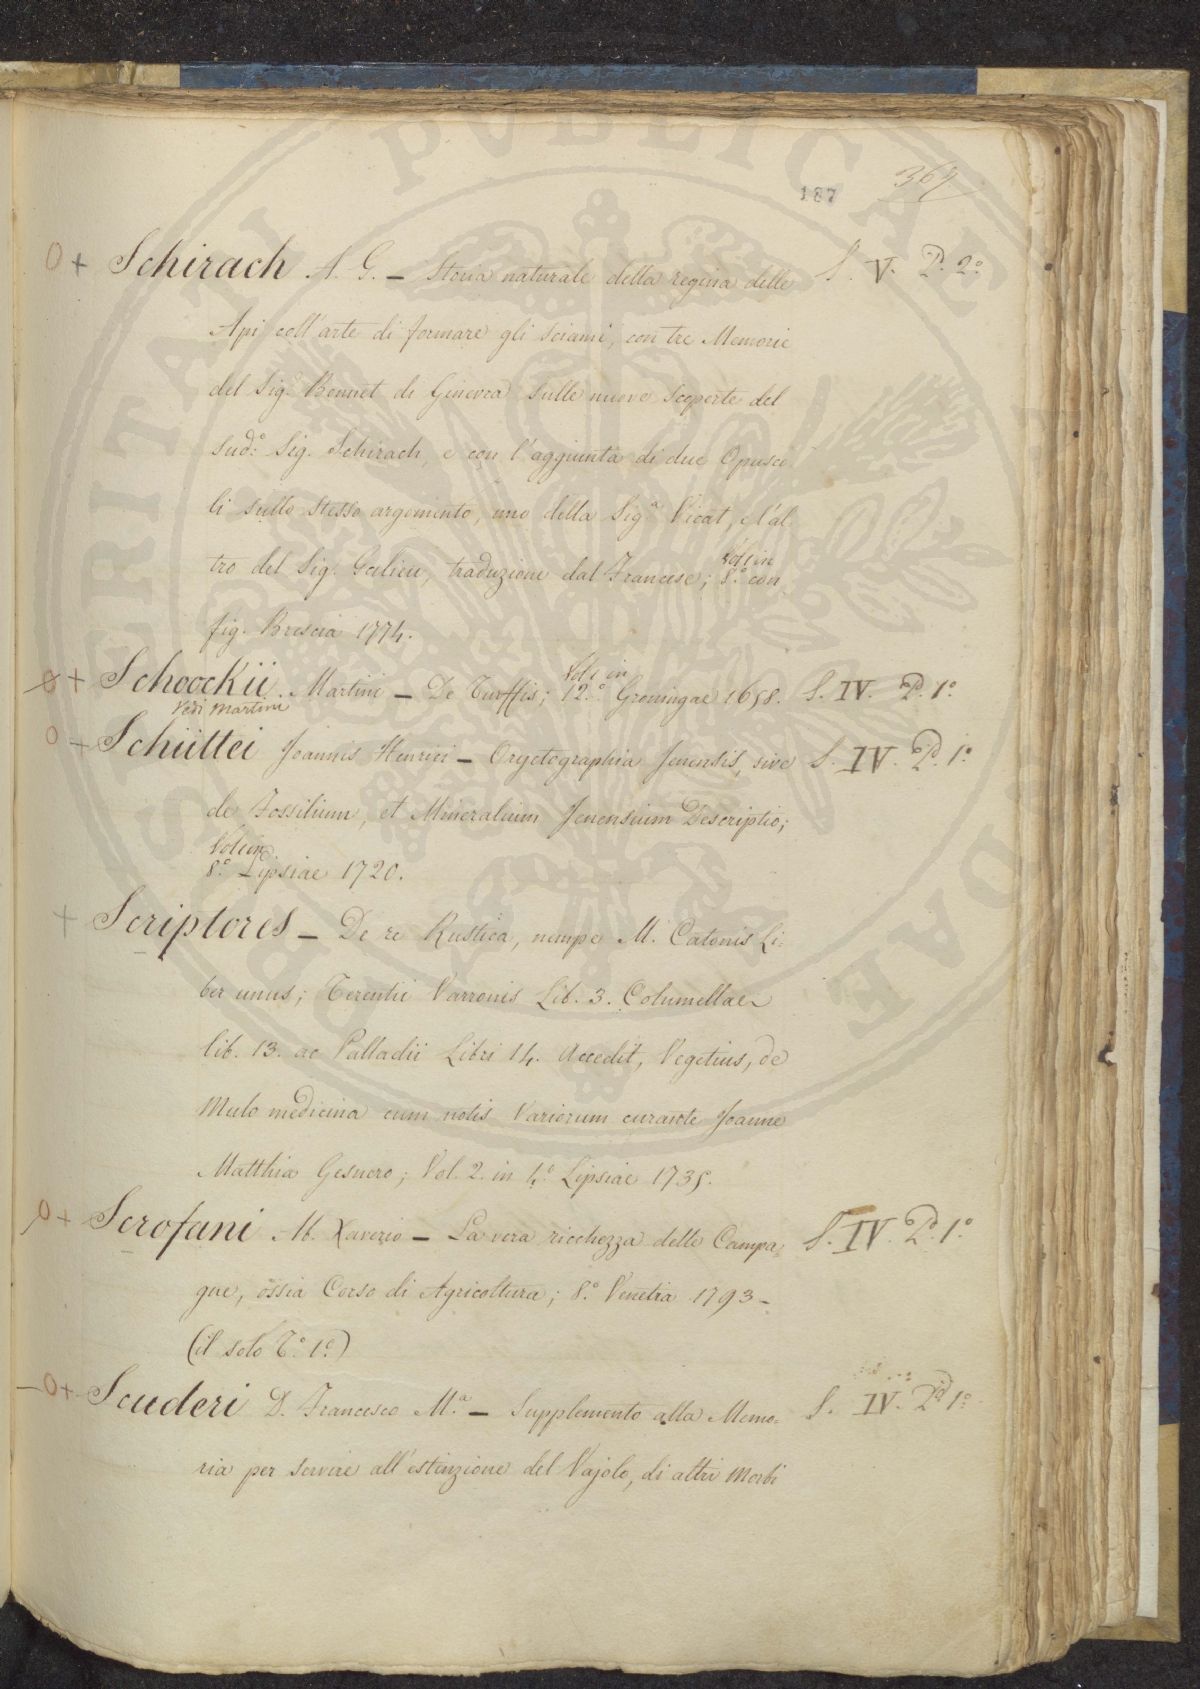 187 367
O + Schirach A. G. – Storia naturale della regina delle S. V. P. 2.º
Api coll'arte di formare gli sciami, con tre Memorie
del Sig.ʳ Bonnet di Ginevra sulle nuove scoperte del
sud.º Sig. Schirach, e con l'aggiunta di due Opusco
li sullo stesso argomento, uno della Sig.ª Vicat, e l'al
tro del Sig. Gelieu, traduzione dal Francese; Vol 1 in 8.º con
fig. Brescia 1774.
O + Schoockii Martini – De Turffis; Vol 1 in 12.º Groningae 1658. S. IV. P. 1º
Vedi Martini
O + Schüttei Joannis Henrici – Oryctographia Jenensis, sive S. IV. P. 1º
de Fossilium, et Mineralium Jenensium Descriptio;
Vol 1 in
8.º Lipsiae 1720.
+ Scriptores – De re Rustica, nempe M. Catonis Li:
ber unus; Terentii Varronis Lib. 3. Columellae
lib. 13. ac Palladii Libri 14. Accedit, Vegetius, de
Mulo medicina cum notis Variorum curante Joanne
Matthia Gesnero; Vol. 2. in 4.º Lipsiae 1735.
O + Scrofani Ab. Xaverio – La vera ricchezza delle Campa: S. IV. P. 1.º
gne, ossia Corso di Agricoltura; 8.º Venetia 1793 –
(il solo T.º 1.º)
– O + Scuderi D. Francesco M.ª – Supplemento alla Memo: S. IV. P. 1º
ria per servire all'estinzione del Vajolo, di altri Morbi
PUBLICAE
PROSPERITATI